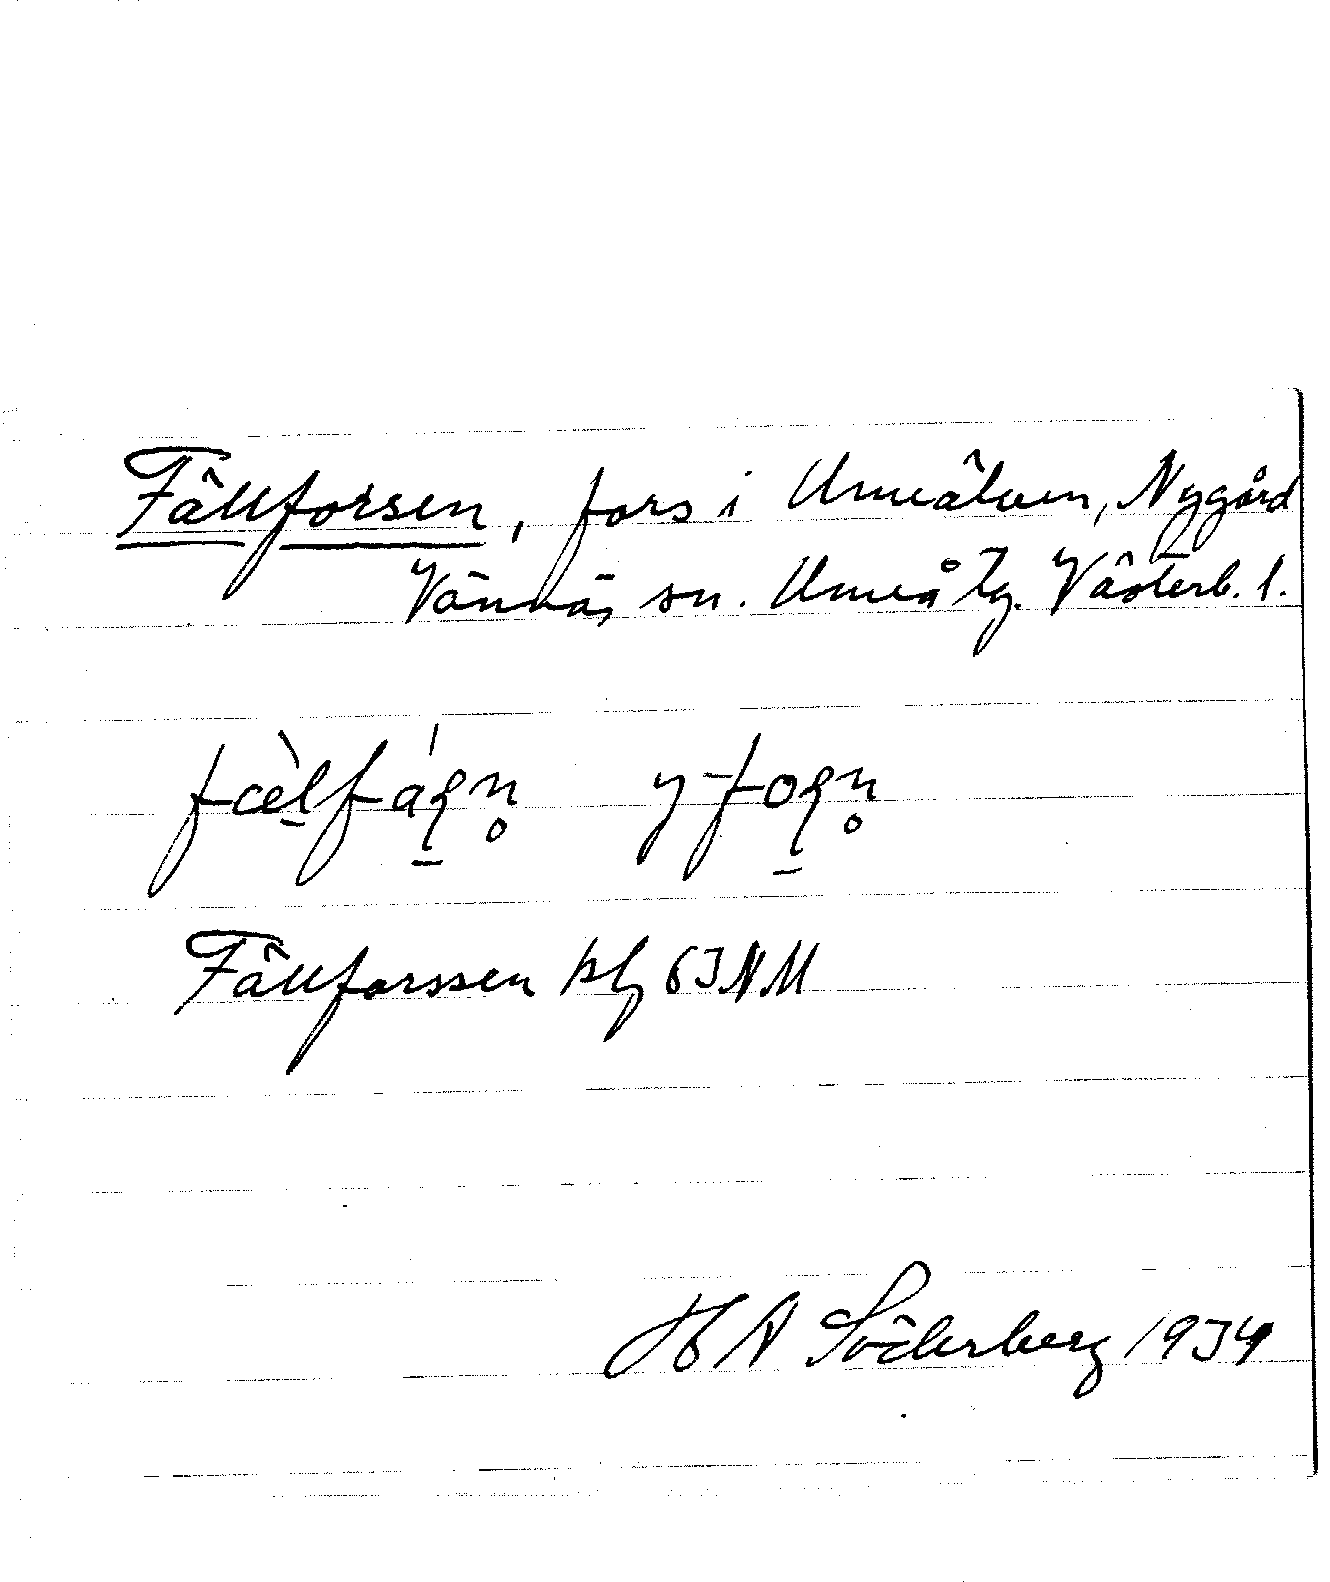 Fällforsen, fors i Umeälven, Nygård
Vännäs sn. Umeå tg. Västerb. l.
Fällforssen kbl 63 NM
H A Söderberg 1934